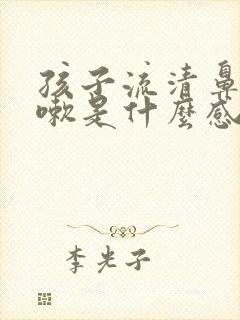 孩子流清鼻
嗽是什麼感
李光子